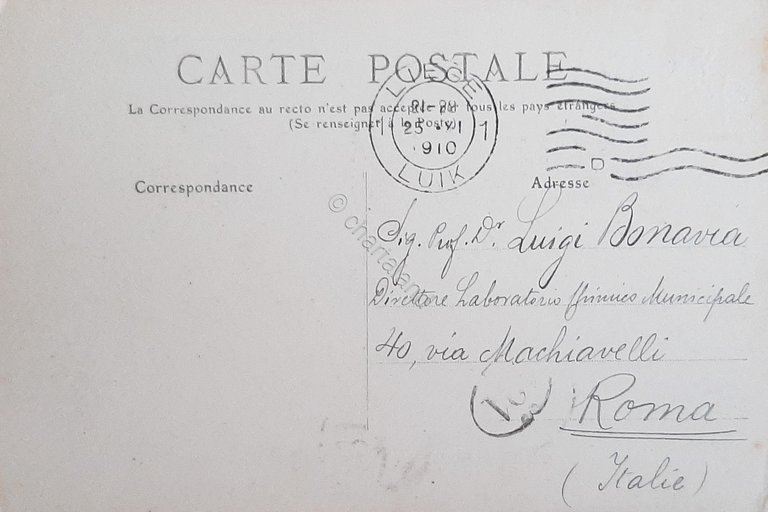 CARTE POSTALE
La Correspondance au recto n'est pas acceptée par tous les pays étrangers
(Se renseigner à la Poste)
LIÈGE
21-22
25 · VI
1
1910
LUIK
D
Correspondance
Adresse
© charta
Sig. Prof. Dr. Luigi Bonavia
Direttore Laboratorio Chimico Municipale
40, via Machiavelli
Roma
(Italie)